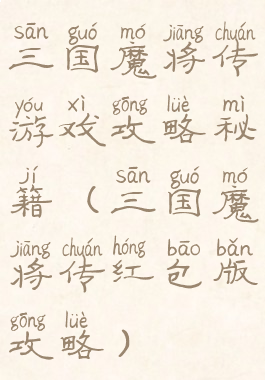 sān guó mó jiāng chuán
三国魔将传
yóu xì gōng lüè mì
游戏攻略秘
jí sān guó mó
籍（三国魔
jiāng chuán hóng bāo bǎn
将传红包版
gōng lüè
攻略）